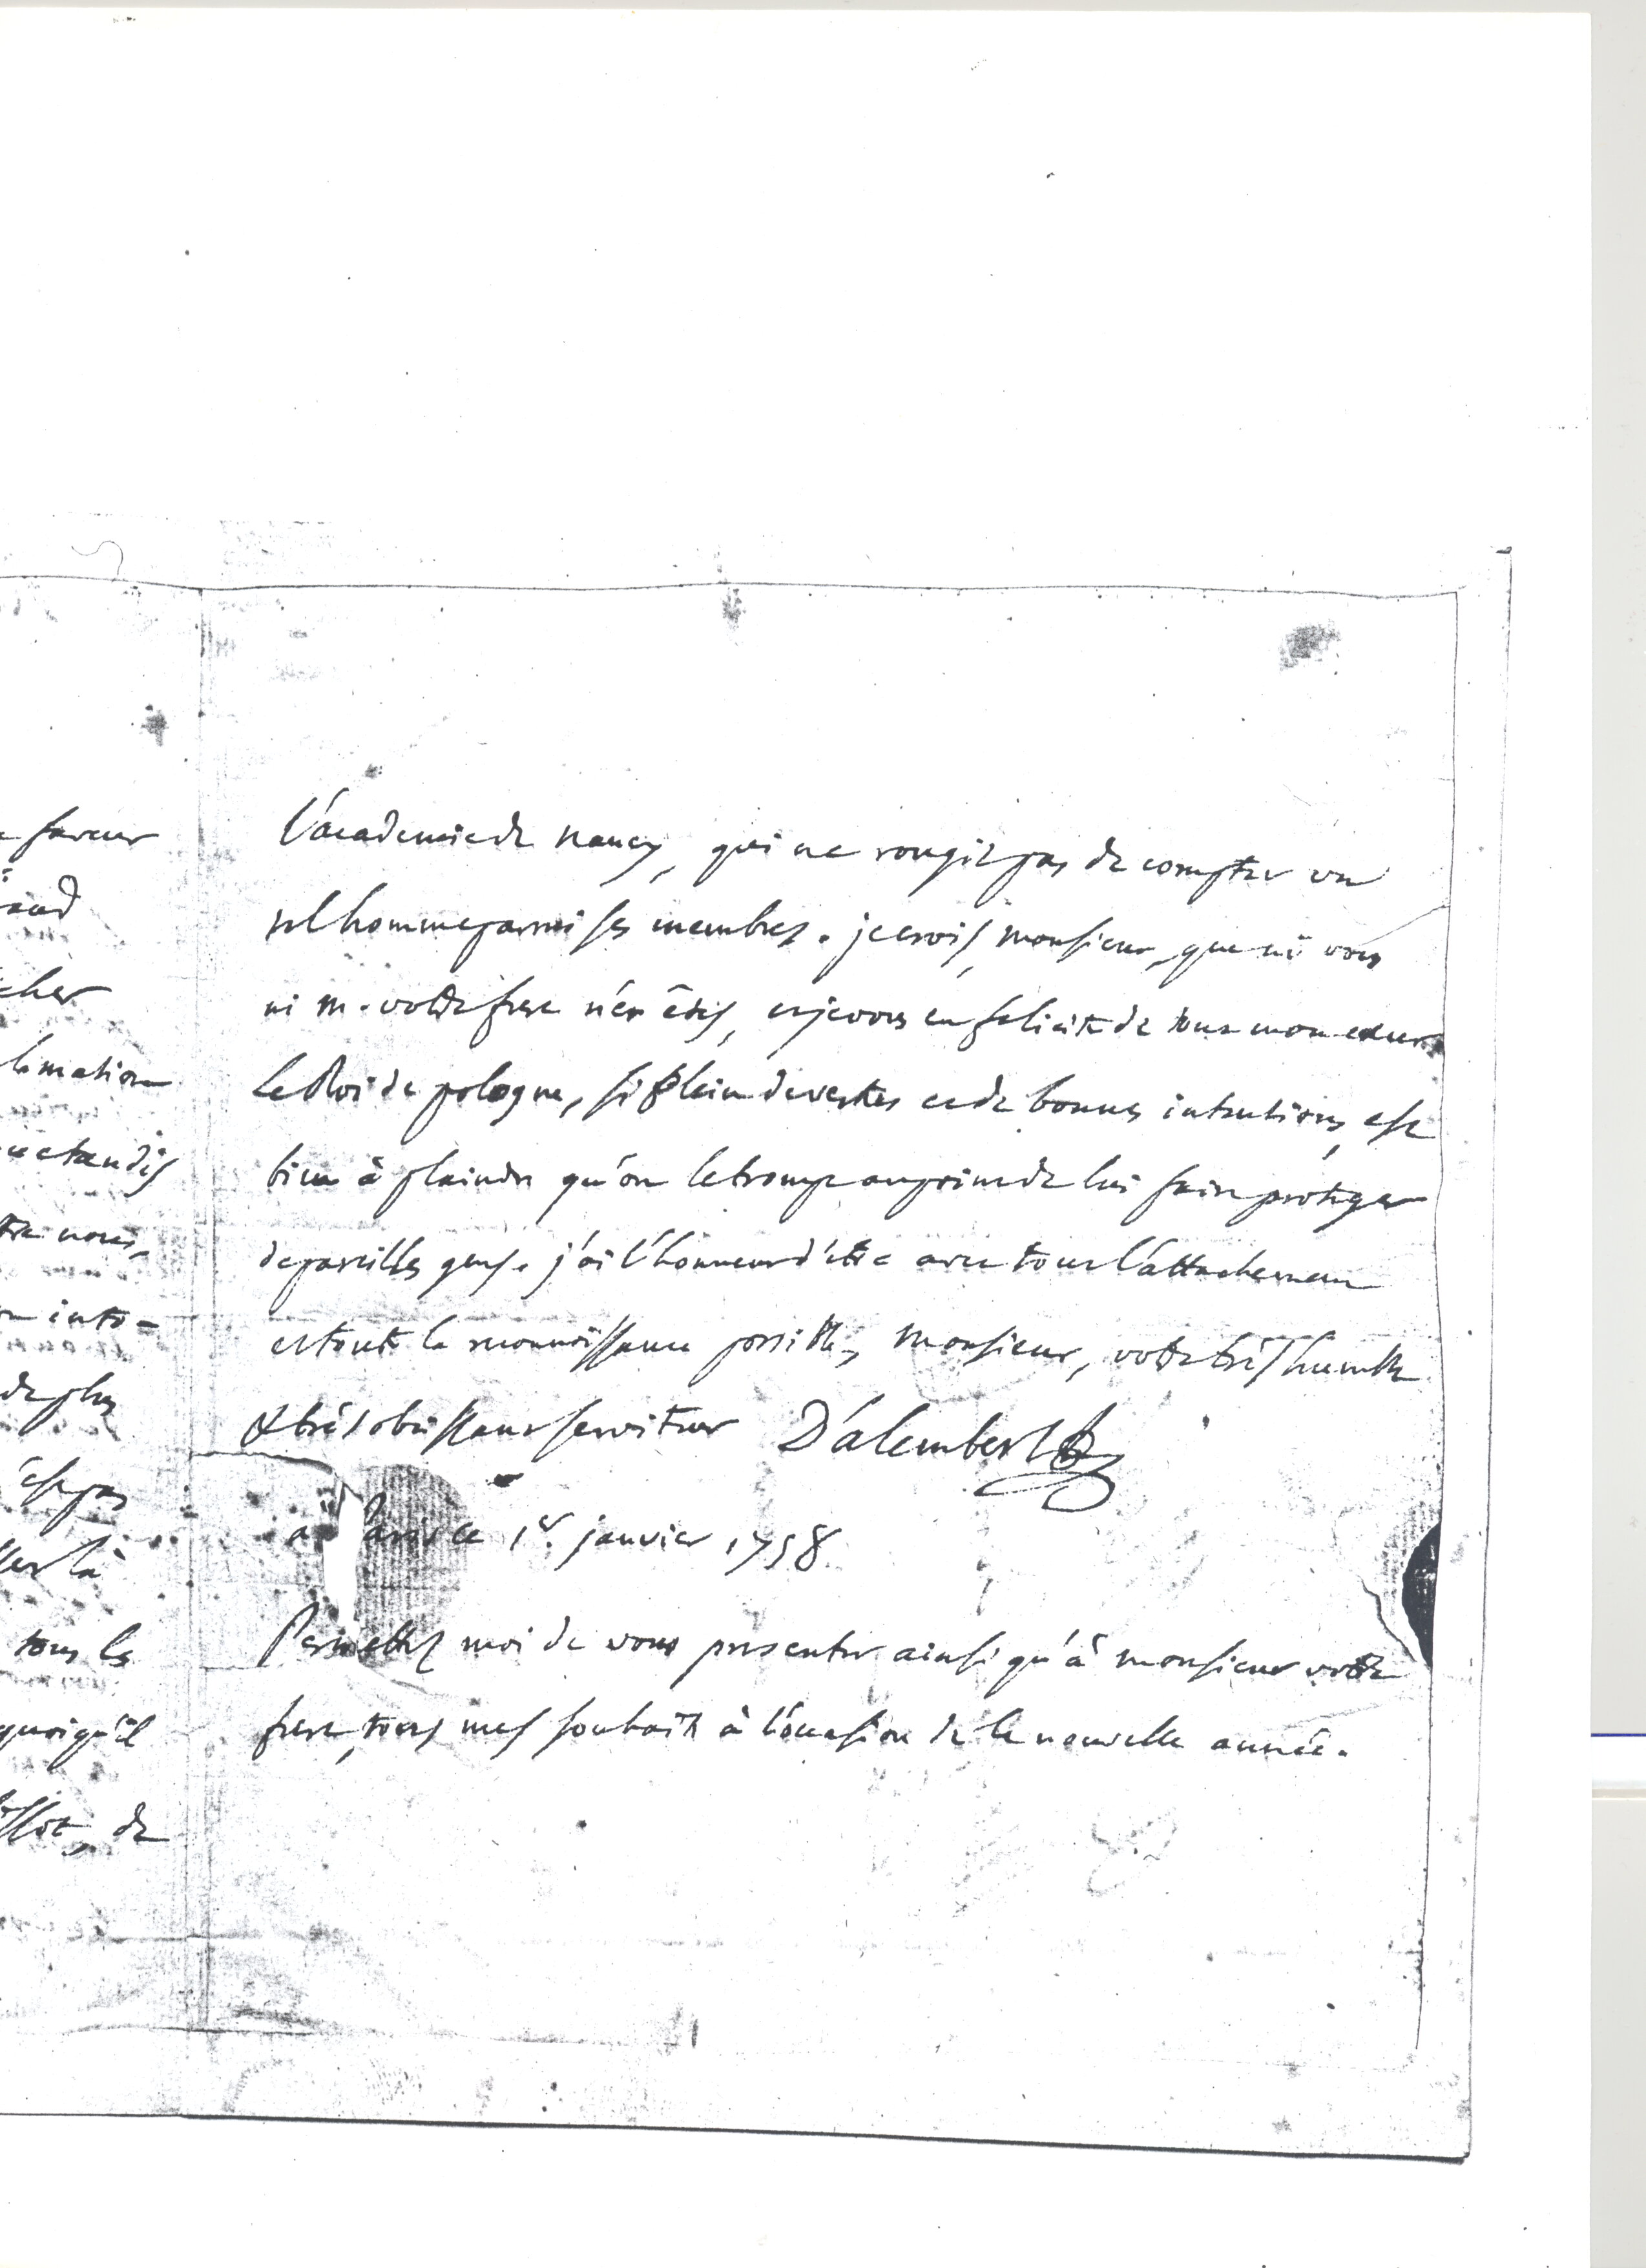 faveur
cher
tandis
nous,
de plus
tous les
quoiqu'il
de
L'academie de nancy, qui ne rougit pas de compter un
tel homme parmi ses membres. je crois, monsieur, que ni vous
ni m. votre frere n'en êtes, et je vous en felicite de tout mon cœur.
Le Roi de pologne, si plein de vertus et de bonnes intentions, est
bien à plaindre qu'on le trompe au point de lui faire proteger
de pareilles gens. j'ai l'honneur d'etre avec tout l'attachement
et toute la reconnoissance possible, Monsieur, votre très humble
& très obeissant serviteur D'alembert
a Paris ce 1er. janvier 1758
Permettez moi de vous presenter ainsi qu'à monsieur votre
frere, tous mes souhaits à l'occasion de la nouvelle année.